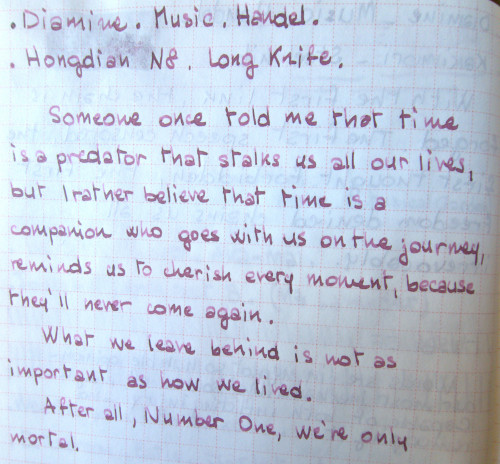 . Diamine. Music. Handel.
. Hongdian N8. Long Knife.
Someone once told me that time
is a predator that stalks us all our lives,
but I rather believe that time is a
companion who goes with us on the journey,
reminds us to cherish every moment, because
they'll never come again.
What we leave behind is not as
important as how we lived.
After all, Number One, we're only
mortal.